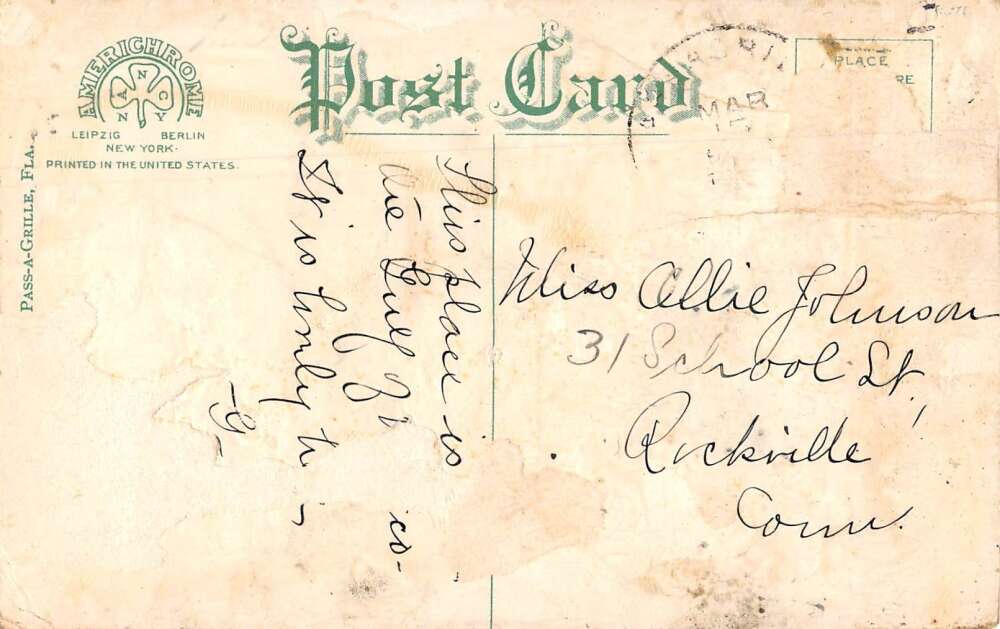 AMERICHROME
A N C
N Y
LEIPZIG BERLIN
NEW YORK.
PRINTED IN THE UNITED STATES.
Post Card
PLACE
RE
MAR
PASS-A-GRILLE, FLA.
This place is
the Gulf
It is
-G-
Miss Allie Johnson
31 School St.
Rockville
Conn.